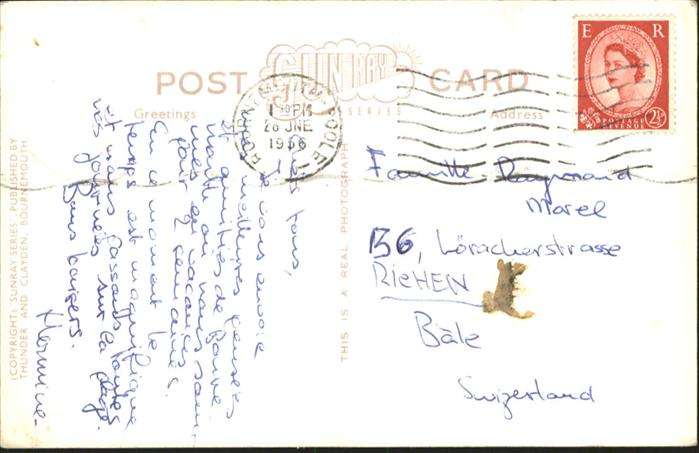 POST CARD
SUN RAY
SERIES
Greetings
Address
E R
POSTAGE
REVENUE
2½
BOURNEMOUTH-POOLE
1 PM
28 JNE
1956
(COPYRIGHT). SUNRAY SERIES - PUBLISHED BY
THUNDER AND CLAYDEN, BOURNEMOUTH
THIS IS A REAL PHOTOGRAPH
tous,
Je vous envoie
meilleures pensées
et amitiés de Bourne-
mouth où nous som-
mes en vacances
pour 2 semaines.
En ce moment le
temps est magnifique
et nous passons toutes
nos journées sur la plage.
Bons baisers.
Hermine.
Famille Raymond
Morel
136, Löracherstrasse
RIEHEN
Bâle
Swizerland